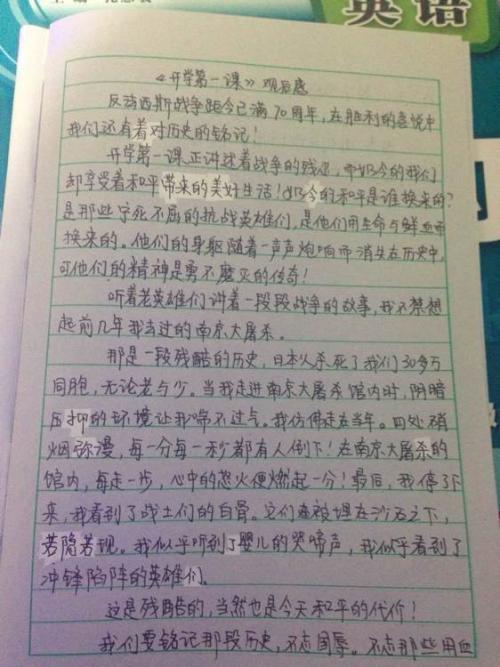 英语
《开学第一课》观后感
反法西斯战争距今已满70周年，在胜利的喜悦中
我们还有着对历史的铭记！
开学第一课正讲述着战争的残忍，而如今的我们
却享受着和平带来的美好生活！如今的和平是谁换来的？
是那些宁死不屈的抗战英雄们，是他们用生命与鲜血而
换来的。他们的身躯随着一声声炮响而消失在历史中，
可他们的精神是勇不磨灭的传奇！
听着老英雄们讲着一段段战争的故事，我不禁想
起前几年我去过的南京大屠杀。
那是一段残酷的历史，日本人杀死了我们30多万
同胞，无论老与少。当我走进南京大屠杀馆内时，阴暗
压抑的环境让我喘不过气。我仿佛走在当年。四处硝
烟弥漫，每一分每一秒都有人倒下！在南京大屠杀的
馆内，每走一步，心中的怒火便燃起一分！最后，我停了下
来，我看到了战士们的白骨。它们在被埋在沙石之下，
若隐若现。我似乎听到了婴儿的哭啼声，我似乎看到了
冲锋陷阵的英雄们。
这是残酷的，当然也是今天和平的代价！
我们要铭记那段历史，不忘国辱。不忘那些用血